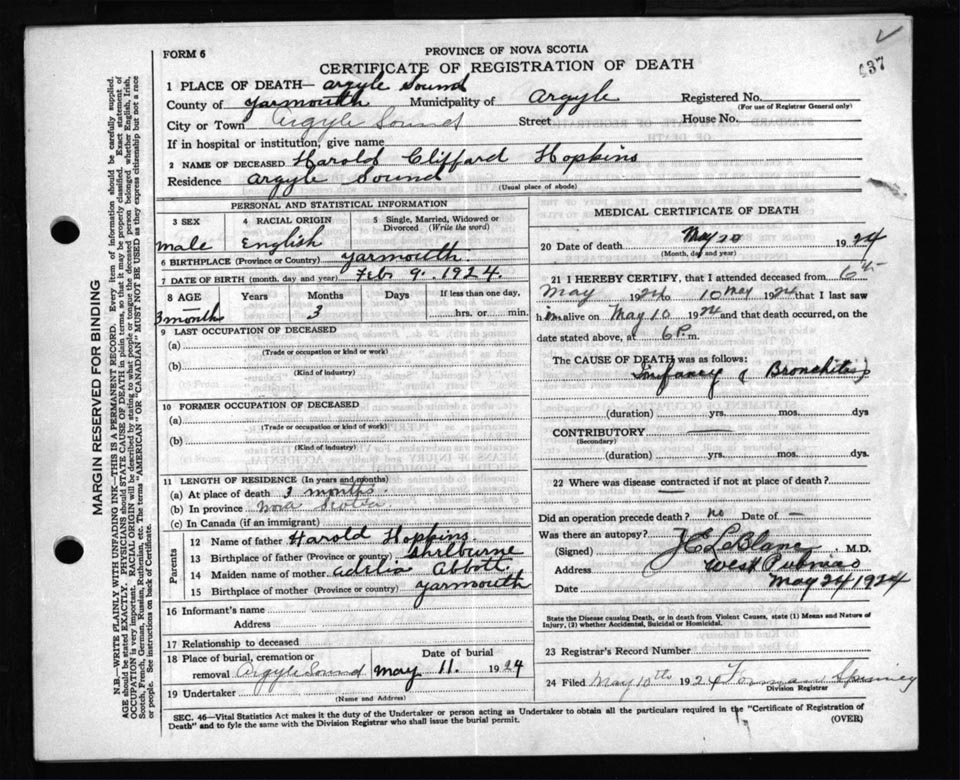 437
FORM 6
PROVINCE OF NOVA SCOTIA
CERTIFICATE OF REGISTRATION OF DEATH
1 PLACE OF DEATH— Argyle Sound
County of Yarmouth Municipality of Argyle Registered No.
(For use of Registrar General only)
City or Town Argyle Sound Street House No.
If in hospital or institution, give name
2 NAME OF DECEASED Harold Cliffard Hopkins
Residence Argyle Sound
(Usual place of abode)
PERSONAL AND STATISTICAL INFORMATION
3 SEX 4 RACIAL ORIGIN 5 Single, Married, Widowed or Divorced (Write the word)
male English
6 BIRTHPLACE (Province or Country) Yarmouth.
7 DATE OF BIRTH (month, day and year) Feb 9. 1924.
8 AGE Years Months Days If less than one day,
3 months 3 hrs. or min.
9 LAST OCCUPATION OF DECEASED
(a)
(Trade or occupation or kind of work)
(b)
(Kind of industry)
10 FORMER OCCUPATION OF DECEASED
(a)
(Trade or occupation or kind of work)
(b)
(Kind of industry)
11 LENGTH OF RESIDENCE (In years and months)
(a) At place of death 3 months.
(b) In province Nova Scotia
(c) In Canada (if an immigrant)
Parents
12 Name of father Harold Hopkins
13 Birthplace of father (Province or country) Shelbourne
14 Maiden name of mother Adelia Abbott
15 Birthplace of mother (Province or country) Yarmouth
16 Informant's name
Address
17 Relationship to deceased
18 Place of burial, cremation or Date of burial
removal Argyle Sound May 11. 1924
19 Undertaker
(Name and Address)
MEDICAL CERTIFICATE OF DEATH
20 Date of death May 10 1924
(Month, day and year)
21 I HEREBY CERTIFY, that I attended deceased from 6th
May 1924 to 10 May 1924 that I last saw
him alive on May 10 1924 and that death occurred, on
date stated above, at 6 P. m.
The CAUSE OF DEATH was as follows:
Infancy (Bronchitis)
(duration) yrs. mos. dys
CONTRIBUTORY
(Secondary)
(duration) yrs. mos. dys.
22 Where was disease contracted if not at place of death?
Did an operation precede death? no Date of —
Was there an autopsy?
(Signed) J C LeBlanc, M.D.
Address West Pubnico
Date May 24 1924
State the Disease causing Death, or in death from Violent Causes, state (1) Means and Nature of
Injury, (2) whether Accidental, Suicidal or Homicidal.
23 Registrar's Record Number
24 Filed May 10th 1924 Spinney
Division Registrar
SEC. 46—Vital Statistics Act makes it the duty of the Undertaker or person acting as Undertaker to obtain all the particulars required in the "Certificate of Registration of
Death" and to fyle the same with the Division Registrar who shall issue the burial permit.
(OVER)
MARGIN RESERVED FOR BINDING
N.B.—WRITE PLAINLY WITH UNFADING INK—THIS IS A PERMANENT RECORD. Every item of information should be carefully supplied.
AGE should be stated EXACTLY. PHYSICIANS should STATE CAUSE OF DEATH in plain terms, so that it may be properly classified. Exact statement of
OCCUPATION is very important. RACIAL ORIGIN will be described by stating to what people or tongue the deceased person belonged whether English, Irish,
Scotch, French, German, Russian, Ruthenian, etc. The terms "AMERICAN" OR "CANADIAN" MUST NOT BE USED as they express citizenship but not a race
or people. See instructions on back of Certificate.